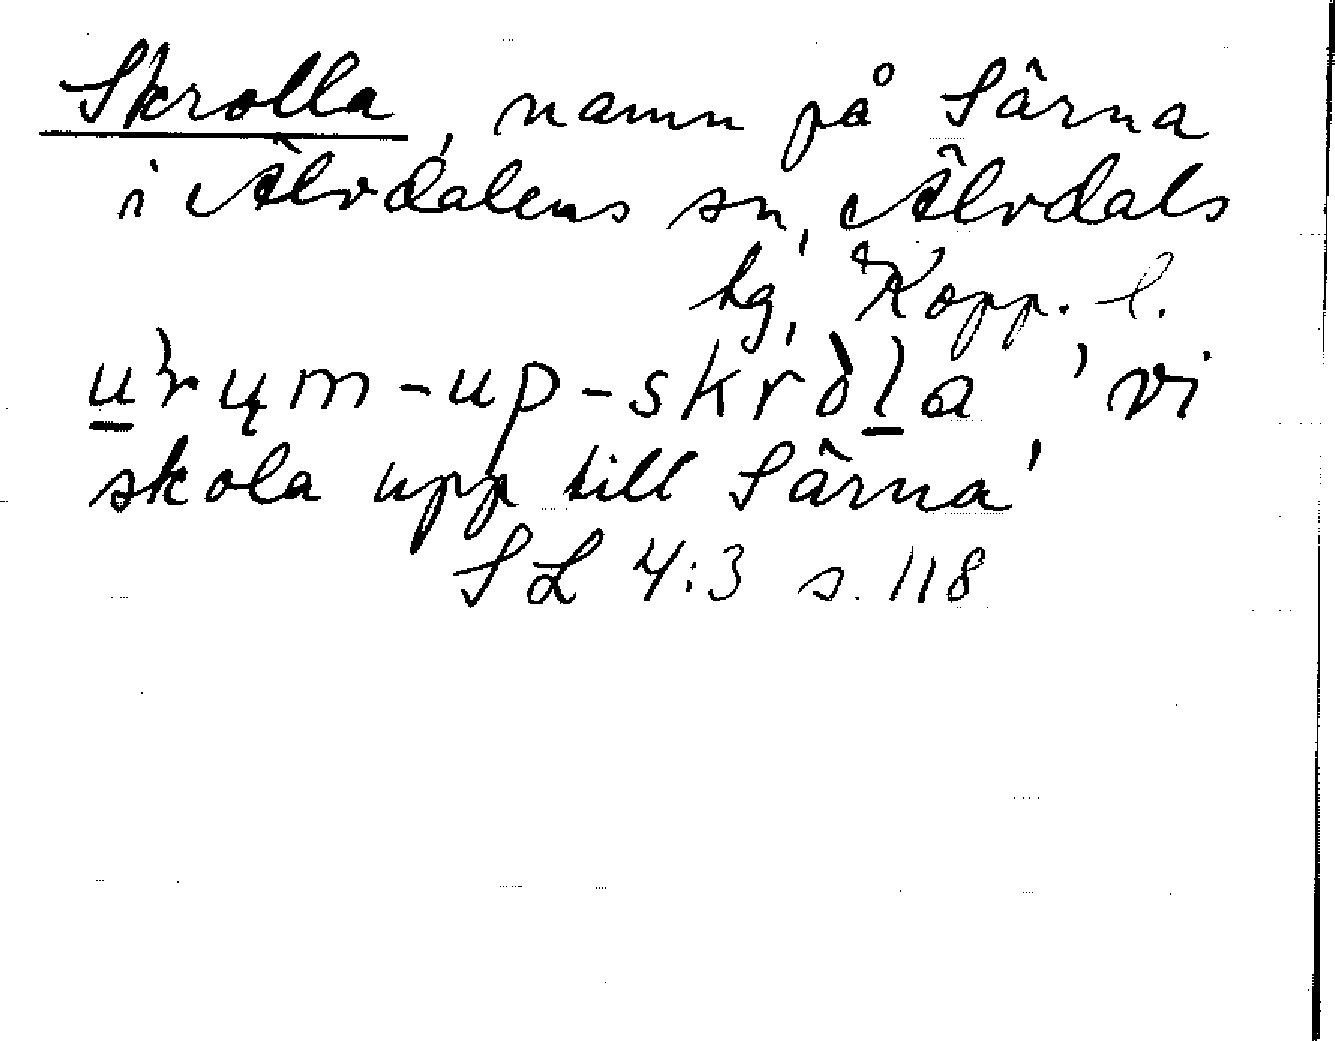 Skrolla, namn på Särna
i Älvdalens sn, Älvdals
hg, Kopp. l.
u̲ʼrųm-up-skròl̲a 'vi
skola upp till Särna'
SL 4:3 s. 118